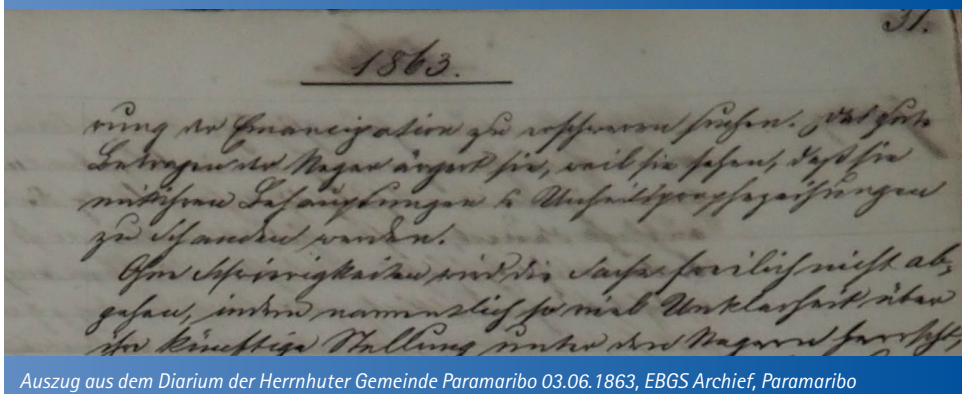 31.
1863.
rung der Emancipation zu erschweren suchen. Das gute
Betragen der Neger ärgert sie, weil sie sehen, daß sie
mit ihren Behauptungen & Unheilsprophezeihungen
zu Schanden werden.
Ohne Schwierigkeiten wird die Sache freilich nicht ab-
gehen, indem namentlich so viel Unklarheit über
ihre künftige Stellung unter den Negern herrscht,
Auszug aus dem Diarium der Herrnhuter Gemeinde Paramaribo 03.06.1863, EBGS Archief, Paramaribo